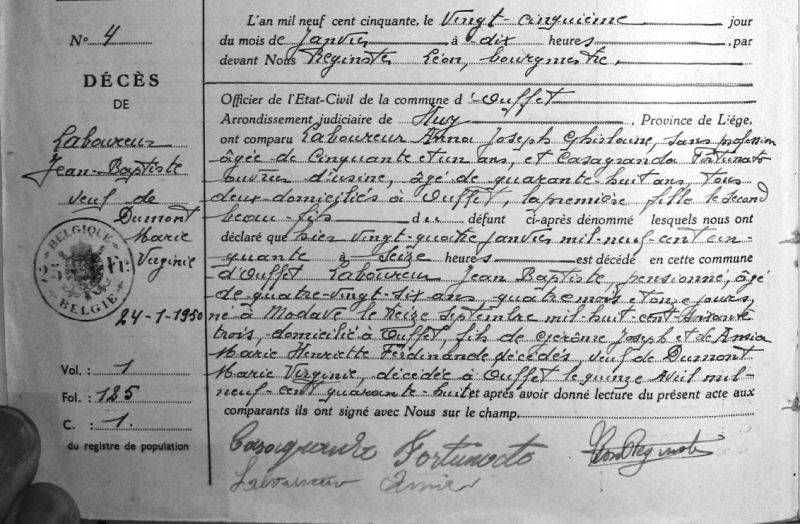 N° 4
DÉCÈS
DE
Laboureur
Jean-Baptiste
veuf de
Dumont
Marie
Virginie
BELGIQUE
25 Fr
BELGIE
24-1-1950
Vol. : 1
Fol. : 185
C. : 1.
du registre de population
L'an mil neuf cent cinquante, le vingt-cinquième jour
du mois de janvier à dix heures, par
devant Nous Reginster Léon, bourgmestre,
Officier de l'Etat-Civil de la commune d'Ouffet
Arrondissement judiciaire de Huy, Province de Liége,
ont comparu Laboureur Anna Joseph Ghislaine, sans profession
âgée de cinquante et un ans, et Casagranda Fortunato
ouvrier d'usine, âgé de quarante-huit ans, tous
deux domiciliés à Ouffet, la première fille le second
beau-fils du défunt ci-après dénommé lesquels nous ont
déclaré que hier vingt-quatre janvier mil-neuf-cent cin-
quante à seize heures est décédé en cette commune
d'Ouffet Laboureur Jean Baptiste, pensionné, âgé
de quatre-vingt-six ans quatre mois et onze jours,
né à Modave le treize septembre mil-huit cent-soixante
trois, domicilié à Ouffet, fils de Gérôme Joseph et de
Marie Henriette Ferdinande décédés, veuf de Dumont
Marie Virginie, décédée à Ouffet le quinze Avril mil-
neuf-cent quarante-huit et après avoir donné lecture du présent acte aux
comparants ils ont signé avec Nous sur le champ.
Casagranda Fortunato
Léon Reginster
Laboureur